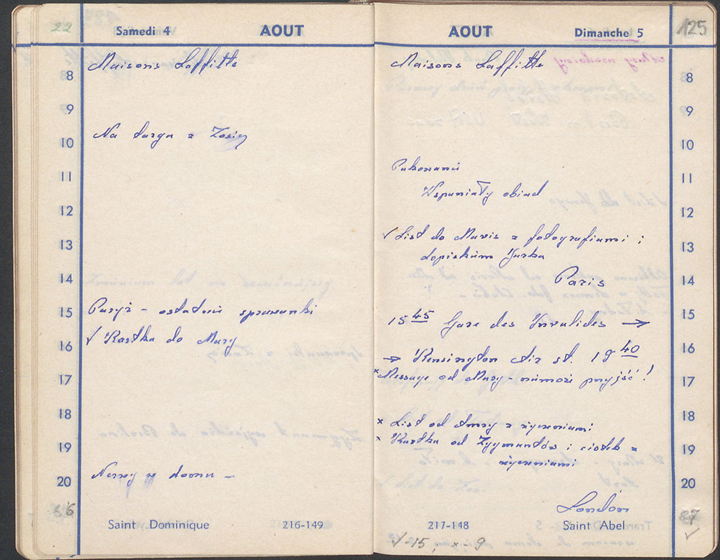 22
Samedi 4
AOUT
8
Maisons Laffitte
9
10
Na targu z Zosią
11
12
13
14
15
Paryż - ostatnie sprawunki
√ Kartka do Mary
16
17
18
19
20
Nerwy w domu -
Saint Dominique
216-149
AOUT
Dimanche 5
125
Maisons Laffitte
8
9
10
Pakowanie
11
Wspaniały obiad
12
√ List do Marii z fotografiami i
13
dopiskiem Jurka
14
Paris
15
15 45 Gare des Invalides →
16
→ Kensington Air st. 19 40
17
× Message od Mary - niemoże przyjść!
18
× List od
z życzeniami
× Kartka od Zygmuntów i ciotek z
19
życzeniami
20
London
217-148
Saint Abel
27
√-15, ×-9